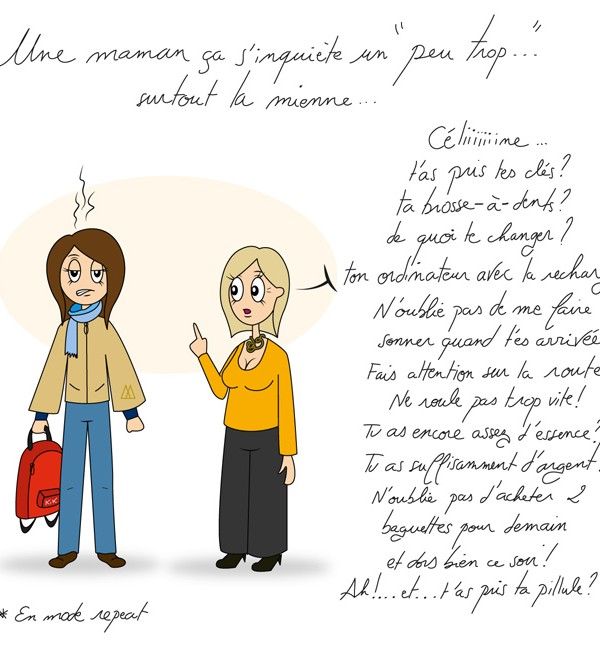 Une maman ça s'inquiète un "peu trop..."
surtout la mienne...
Céliiiiiiine...
t'as pris tes clés?
ta brosse-à-dents?
de quoi te changer?
ton ordinateur avec la recharg
N'oublie pas de me faire
sonner quand t'es arrivée
Fais attention sur la route
Ne roule pas trop vite!
Tu as encore assez d'essence?
Tu as suffisamment d'argent?
N'oublie pas d'acheter 2
baguettes pour demain
et dors bien ce soir!
Ah!...et...t'as pris ta pillule?
* En mode repeat